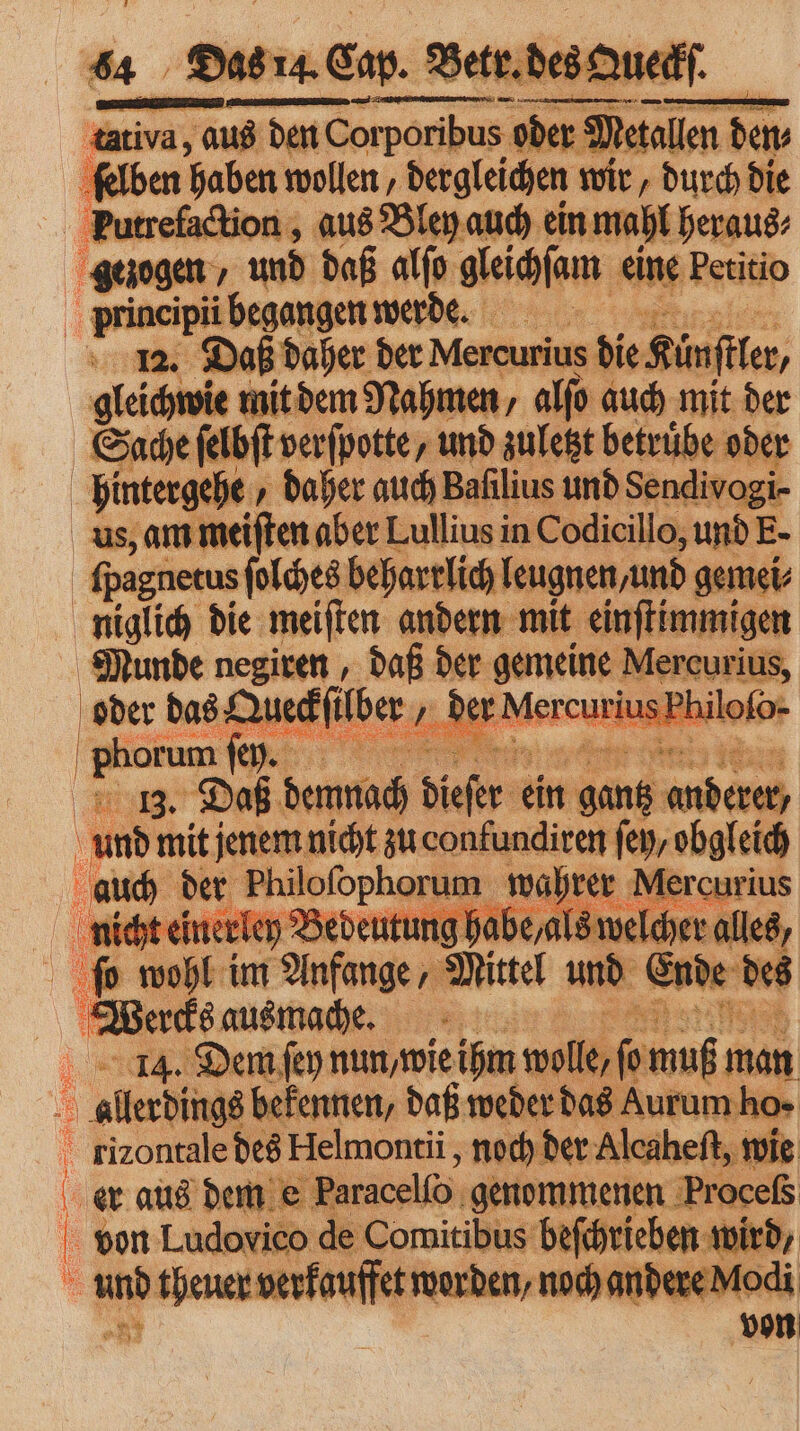 64 Das 14. Cap. Betr. des Queckſ.
tativa, aus den Corporibus oder Metallen den⸗
ſelben haben wollen / dergleichen wir / durch die
Putrefaction, aus Bley auch ein mahl heraus⸗
gezogen / und daß alſo gleichſam eine Petitio
principii begangen werde.
12. Daß daher der Mercurius die Kuͤnſtler /
gleichwie mit dem Nahmen / alſo auch mit der
Sache ſelbſt verſpotte / und zuletzt betruͤbe oder
hintergehe / daher auch Baſilius und Sendivogi-
us, am meiſten aber Lullius in Codicillo, und E-
ſpagnetus ſolches beharrlich leugnen / und gemei⸗
niglich die meiſten andern mit einſtimmigen
Munde negiren / daß der gemeine Mercurius,
oder das Queckſilber / der Mercurius Philoſo-
phorum ſey.
13. Daß demnach dieſer ein gantz anderer /
und mit jenem nicht zu confundiren ſey / obgleich
auch der Philoſophorum wahrer Mercurius
nicht einerley Bedeutung habe / als welcher alles /
ſo wohl im Anfange / Mittel und Ende des
Wercks ausmache.
14. Dem ſey nun / wie ihm wolle / ſo muß man
allerdings bekennen / daß weder das Aurum ho-
rizontale des Helmontii, noch der Alcaheſt, wie
er aus dem e Paracelſo genommenen Proceſs
von Ludovico de Comitibus beſchrieben wird /
und theuer verkauffet worden / noch andere Modi
von